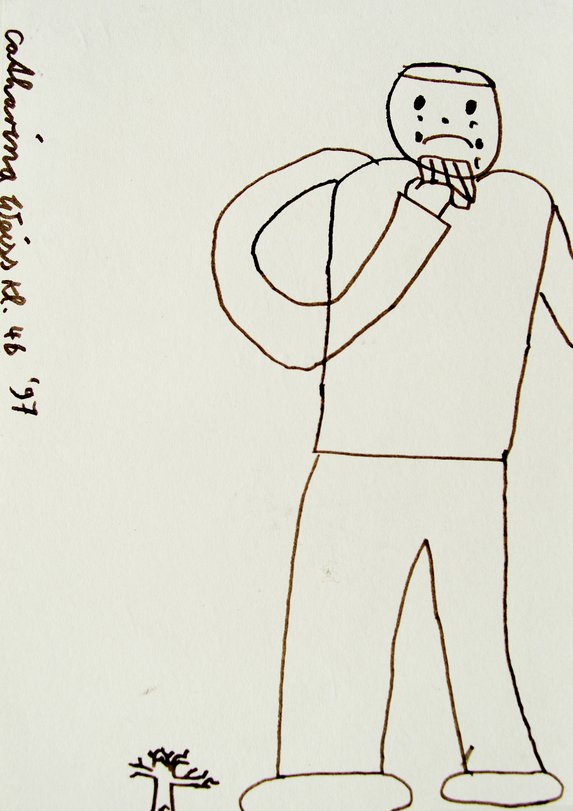 Catharina Weiss Kl. 4b '97